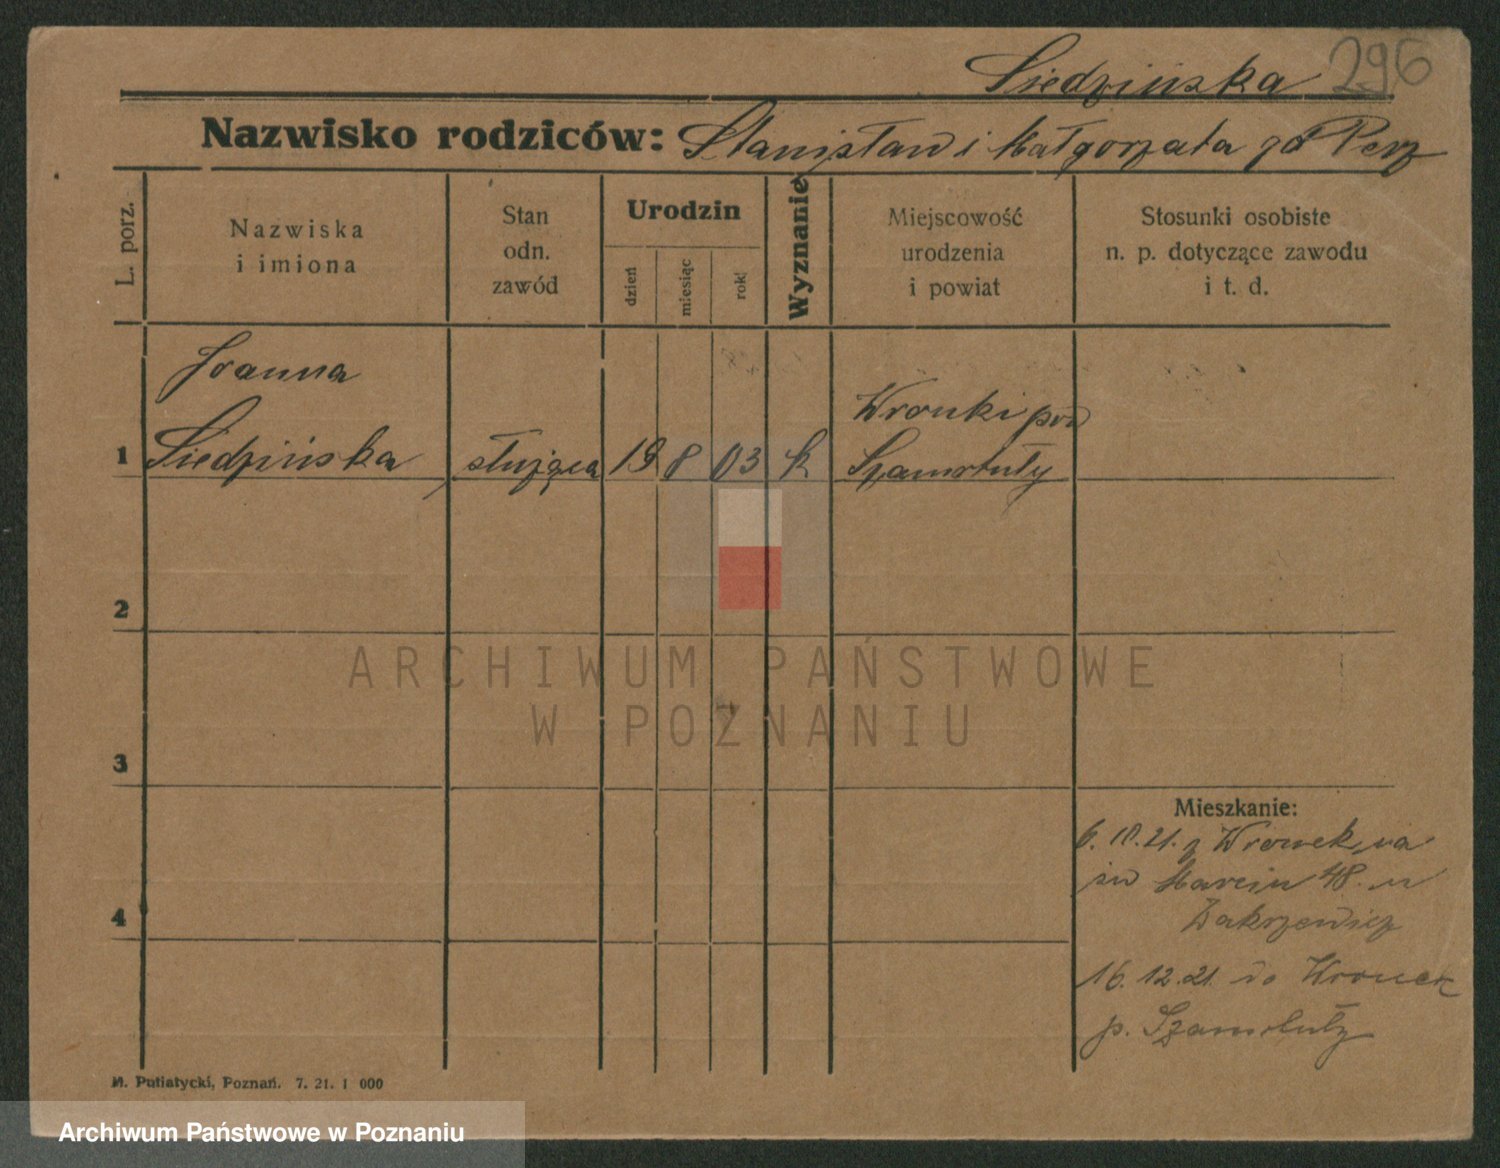 Siedzińska 296
Nazwisko rodziców: Stanisław i Małgorzata zd Perz
L. porz.
Nazwiska
i imiona
Stan
odn.
zawód
Urodzin
dzień
miesiąc
rok
Wyznanie
Miejscowość
urodzenia
i powiat
Stosunki osobiste
n. p. dotyczące zawodu
i t. d.
Joanna
1 Siedzińska służąca 19 8 03 k Wronki pow
Szamotuły
2
3
4
ARCHIWUM PAŃSTWOWE
W POZNANIU
Mieszkanie:
6. 10. 21. z Wronek na
św Marcin 48. u
Zakrzewicz
16. 12. 21. do Wronek
p. Szamotuły
M. Putiatycki, Poznań. 7. 21. 1 000
Archiwum Państwowe w Poznaniu